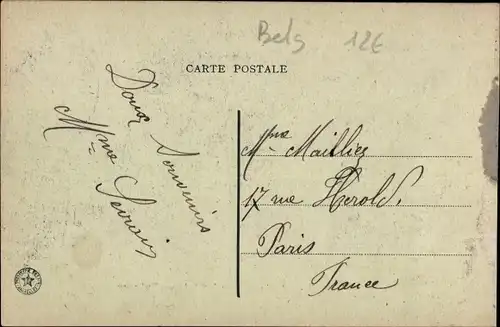 Belg 12€
CARTE POSTALE
Doux Souvenirs
Mme
Mme Mailliez
17 rue Herold.
Paris
France